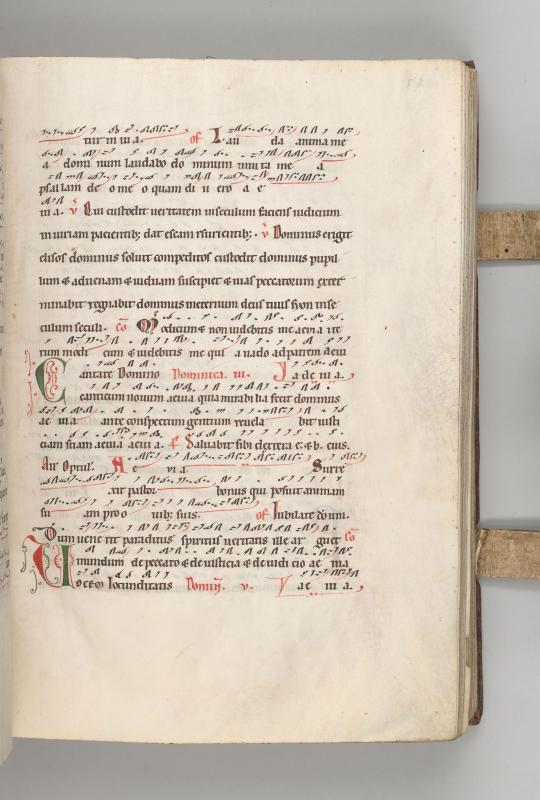 tur in via. of Lau da anima me
a domi num laudabo do minum in vita me a
psallam de o me o quam di u ero a e
ui a. v Qui custodit veritatem in seculum faciens iudicium
iniuriam pacientib; dat escam esurientib;. v Dominus erigit
elisos dominus soluit compeditos custodit dominus pupil
lum & aduenam & viduam suscipiet & vias peccatorum exter
minabit regnabit dominus in eternum deus tuus syon in se
culum seculi. Co Modicum & non videbitis me aevia ite
rum modi cum & videbitis me qui a vado ad patrem aevi
Cantate Domino Dominica iii. a de ui a.
canticum novum aeuia quia mirabilia fecit dominus
ae ui a ante conspectum gentium revela bit iusti
ciam suam aeuia aeui a. Ps Saluabit sibi dextera e; & b. eius.
A e vi a Surre
xit pastor bonus qui posuit animam
su am pro o vib; suis. of Iubilate domi.
Dum vene rit paraclitus spiritus veritatis ille ar guet Co
mundum de peccato & de iusticia & de iudi cio ae uia
Vocem Iocunditatis v. ae ui a.